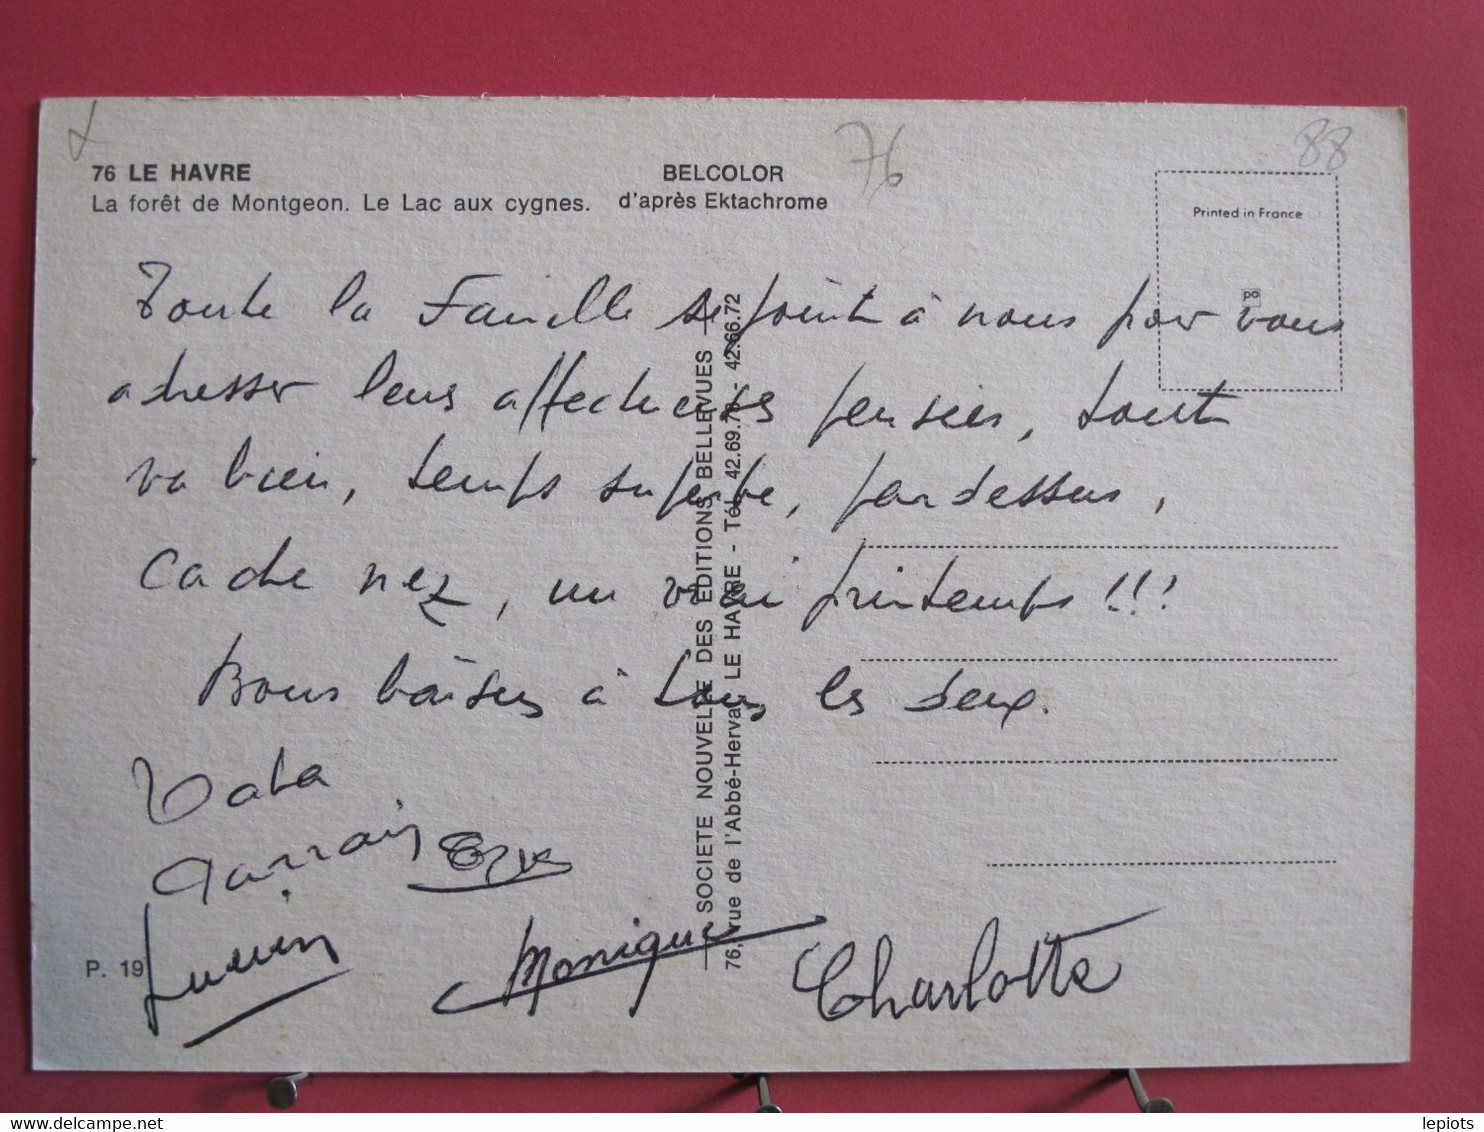 76
88
76 LE HAVRE
La forêt de Montgeon. Le Lac aux cygnes.
BELCOLOR
d'après Ektachrome
Printed in France
Toute la Famille se joint à nous pour vous
adresser leurs affectueuses pensées, tout
va bien, temps superbe, pardessus,
cache nez, un vrai printemps !!!
Bons baisers à tous les deux.
SOCIETE NOUVELLE DES EDITIONS BELLEVUES
76, rue de l'Abbé-Herval LE HAVRE - Tél. 42.69.76 - 42.66.72
Parrain
Lucien
Monique
Charlotte
P. 19
delcampe.net
lepiots